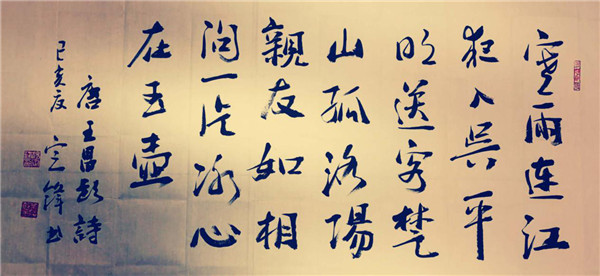 寒雨连江
夜入吴平
明送客楚
山孤洛陽
親友如相
問一片冰心
在玉壺
唐王昌龄詩
己亥夏 定鋒书